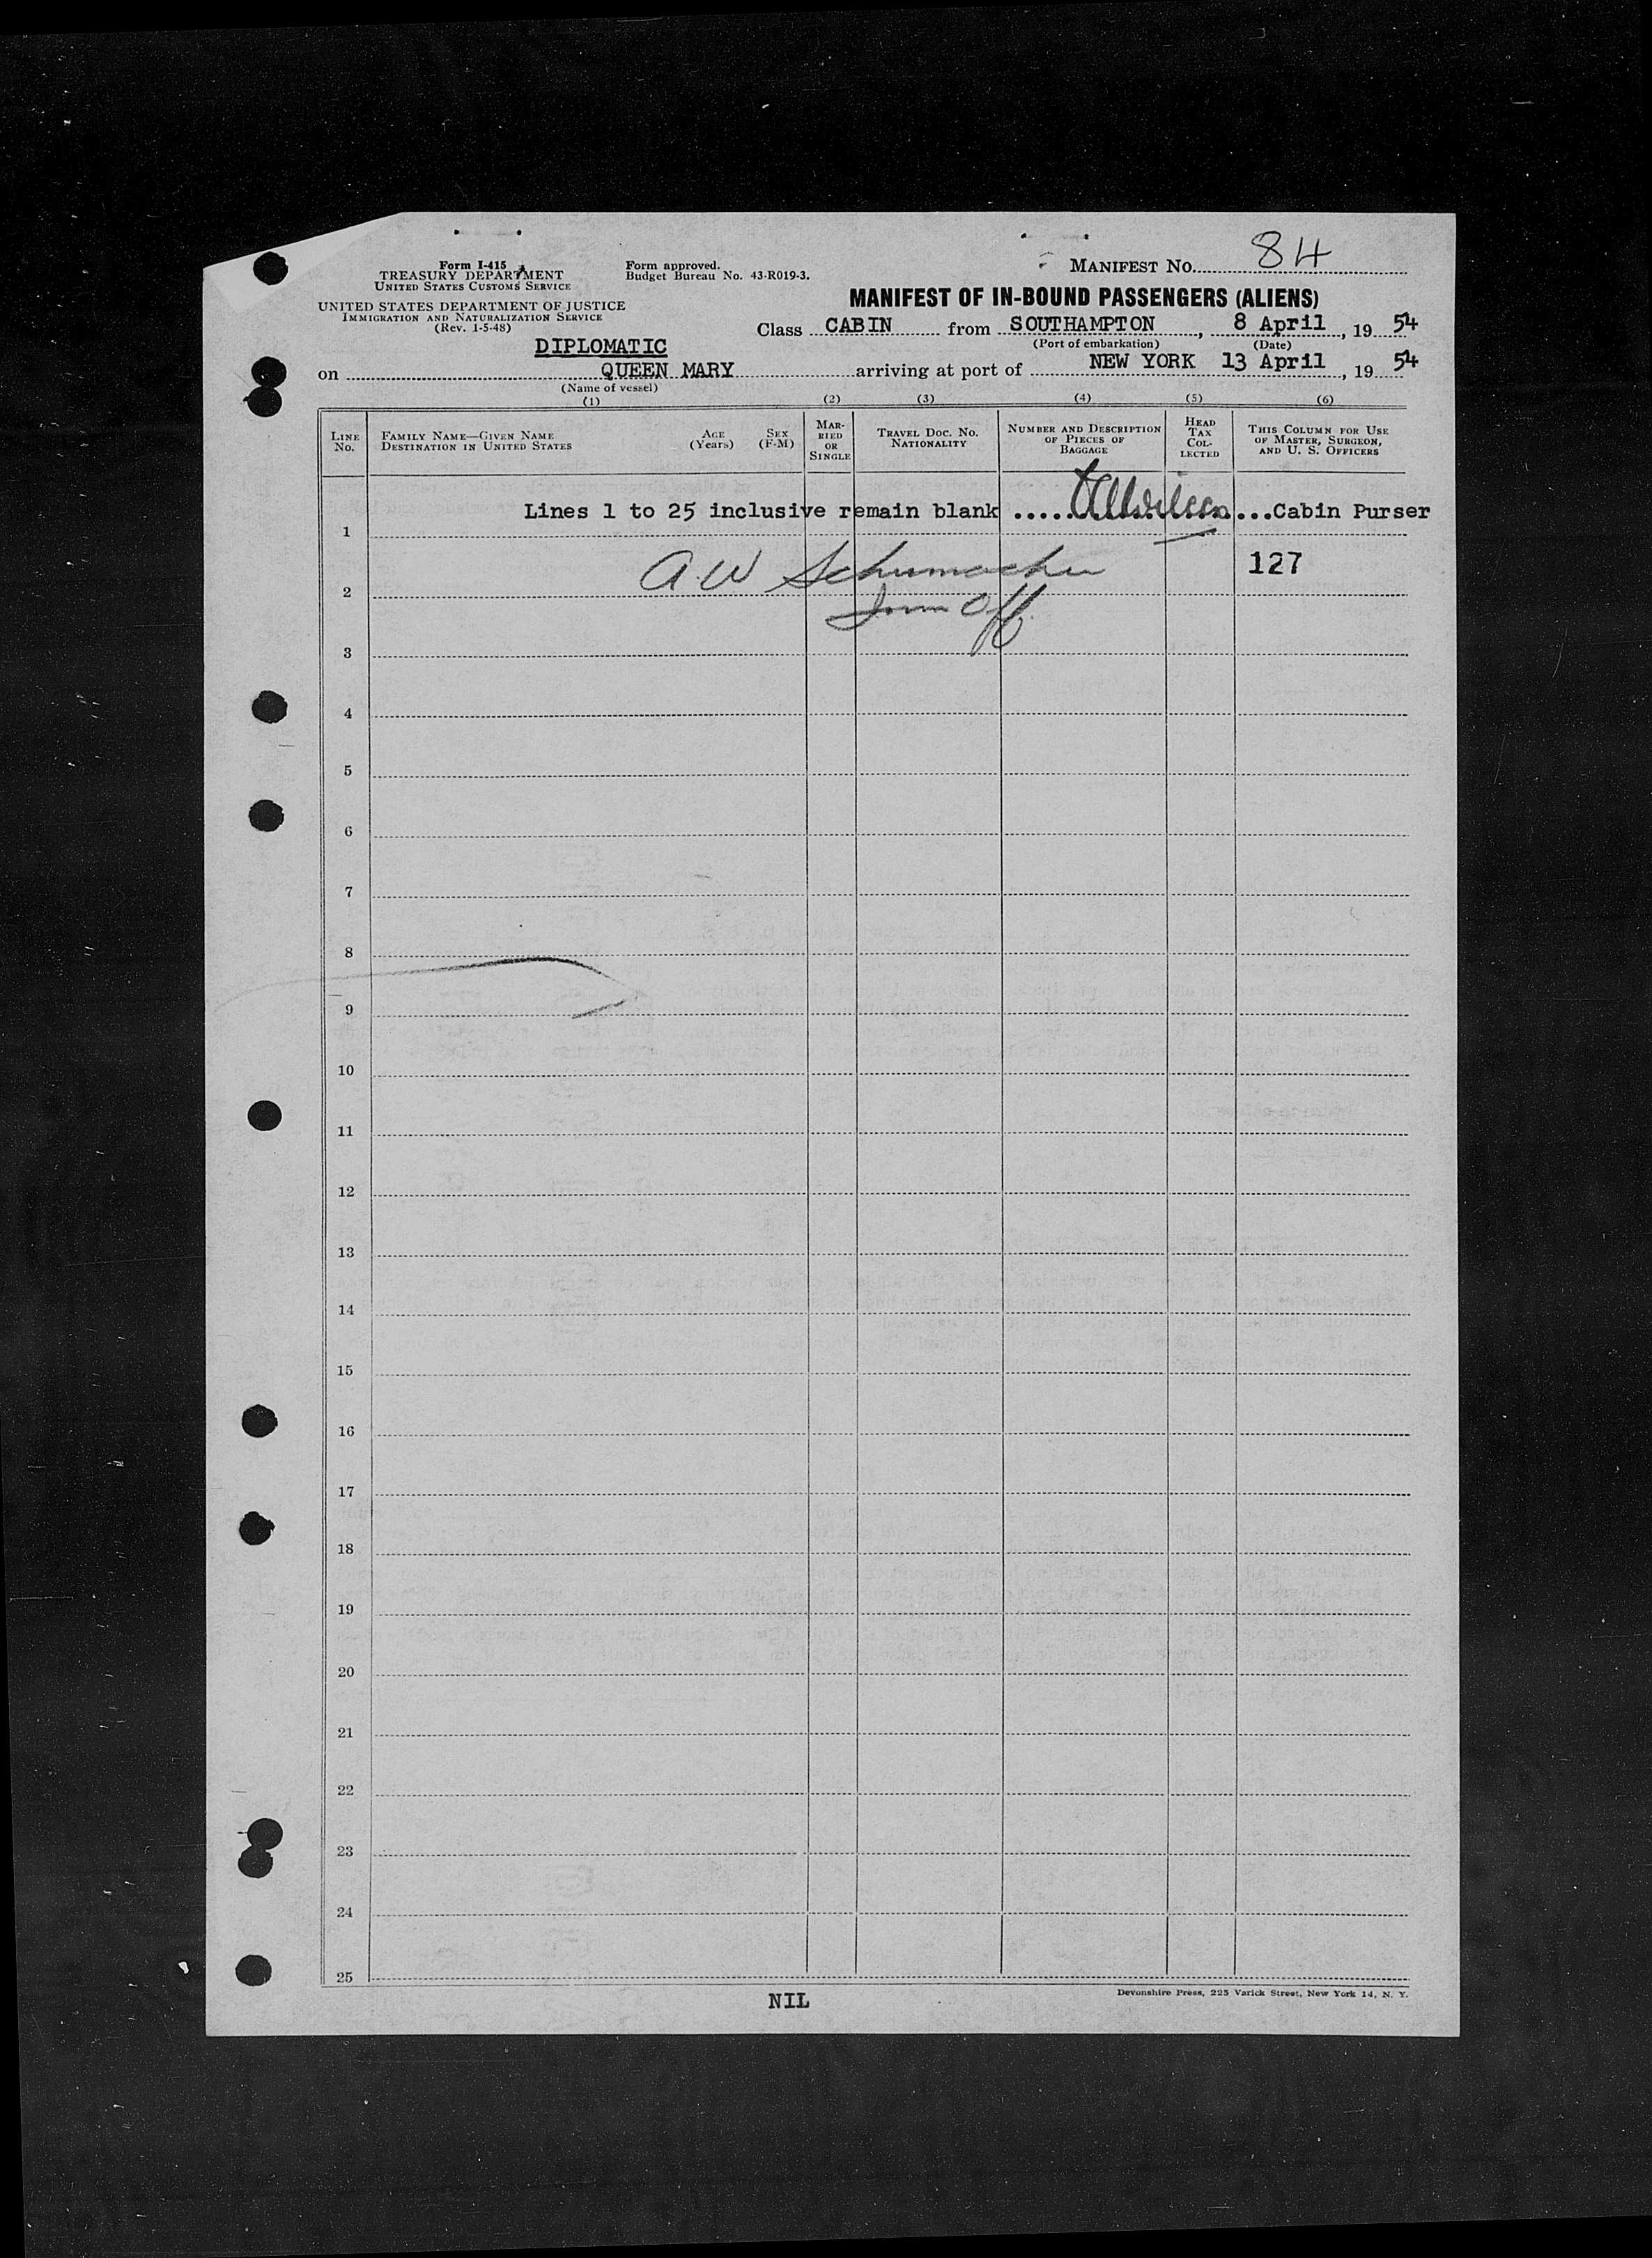 Form I-415
TREASURY DEPARTMENT
UNITED STATES CUSTOMS SERVICE
UNITED STATES DEPARTMENT OF JUSTICE
IMMIGRATION AND NATURALIZATION SERVICE
(Rev. 1-5-48)
Form approved.
Budget Bureau No. 43-R019-3.
MANIFEST NO. 84
MANIFEST OF IN-BOUND PASSENGERS (ALIENS)
Class CABIN from SOUTHAMPTON, 8 April, 19 54
(Port of embarkation) (Date)
DIPLOMATIC
on QUEEN MARY arriving at port of NEW YORK 13 April, 19 54
(Name of vessel)
(1) (2) (3) (4) (5) (6)
LINE No.
FAMILY NAME—GIVEN NAME
DESTINATION IN UNITED STATES
AGE (Years)
SEX (F-M)
MARRIED OR SINGLE
TRAVEL DOC. NO.
NATIONALITY
NUMBER AND DESCRIPTION OF PIECES OF BAGGAGE
HEAD TAX COLLECTED
THIS COLUMN FOR USE OF MASTER, SURGEON, AND U. S. OFFICERS
Lines 1 to 25 inclusive remain blank ..... ...Cabin Purser
1
A.W Schumacher 127
2
Imm Off.
3
4
5
6
7
8
9
10
11
12
13
14
15
16
17
18
19
20
21
22
23
24
25
NIL
Devonshire Press, 225 Varick Street, New York 14, N. Y.